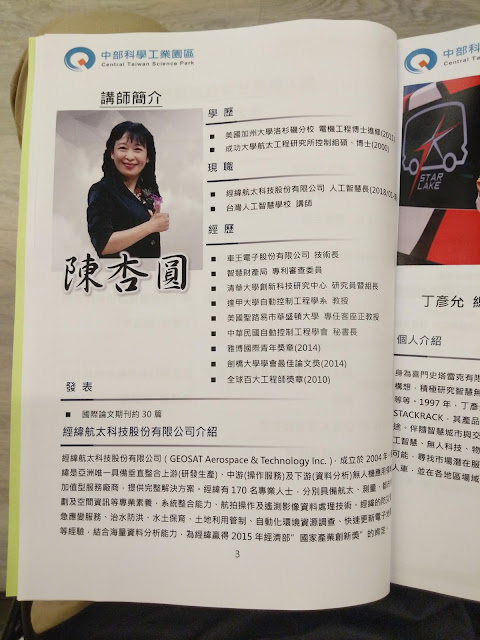 中部科學工業園區
Central Taiwan Science Park
講師簡介
陳杏圓
學歷
■ 美國加州大學洛杉磯分校 電機工程博士進修(2011)
■ 成功大學航太工程研究所控制組碩、博士(2000)
現職
■ 經緯航太科技股份有限公司 人工智慧長(2018/01-
■ 台灣人工智慧學校 講師
經歷
■ 車王電子股份有限公司 技術長
■ 智慧財產局 專利審查委員
■ 清華大學創新科技研究中心 研究員暨組長
■ 逢甲大學自動控制工程學系 教授
■ 美國聖路易市華盛頓大學 專任客座正教授
■ 中華民國自動控制工程學會 秘書長
■ 雅博國際青年獎章(2014)
■ 劍橋大學學會最佳論文獎(2014)
■ 全球百大工程師獎章(2010)
發表
■ 國際論文期刊約 30 篇
經緯航太科技股份有限公司介紹
經緯航太科技股份有限公司 ( GEOSAT Aerospace & Technology Inc. )，成立於 2004 年
緯是亞洲唯一具備垂直整合上游(研發生產)、中游(操作服務)及下游(資料分析)無人機應用
加值型服務廠商，提供完整解決方案。經緯有 170 名專業人士，分別具備航太、測量、都市
劃及空間資訊等專業素養，系統整合能力、航拍操作及遙測影像資料處理技術，經緯的防災
急應變服務、治水防洪、水土保育、土地利用管制、自動化環境資源調查、快速更新電子地
等經驗，結合海量資料分析能力，為經緯贏得 2015 年經濟部"國家產業創新獎"的肯定
3
中部科
Central Ta
STAR
LAKE
丁彥允 總
個人介紹
身為喜門史塔雷克有限
構想，積極研究智慧無
等等。1997 年，丁彥
STACKRACK，其產品
途。伴隨智慧城市與交
工智慧、無人科技、物
可能，尋找市場潛在服
人車，並在各地區場域